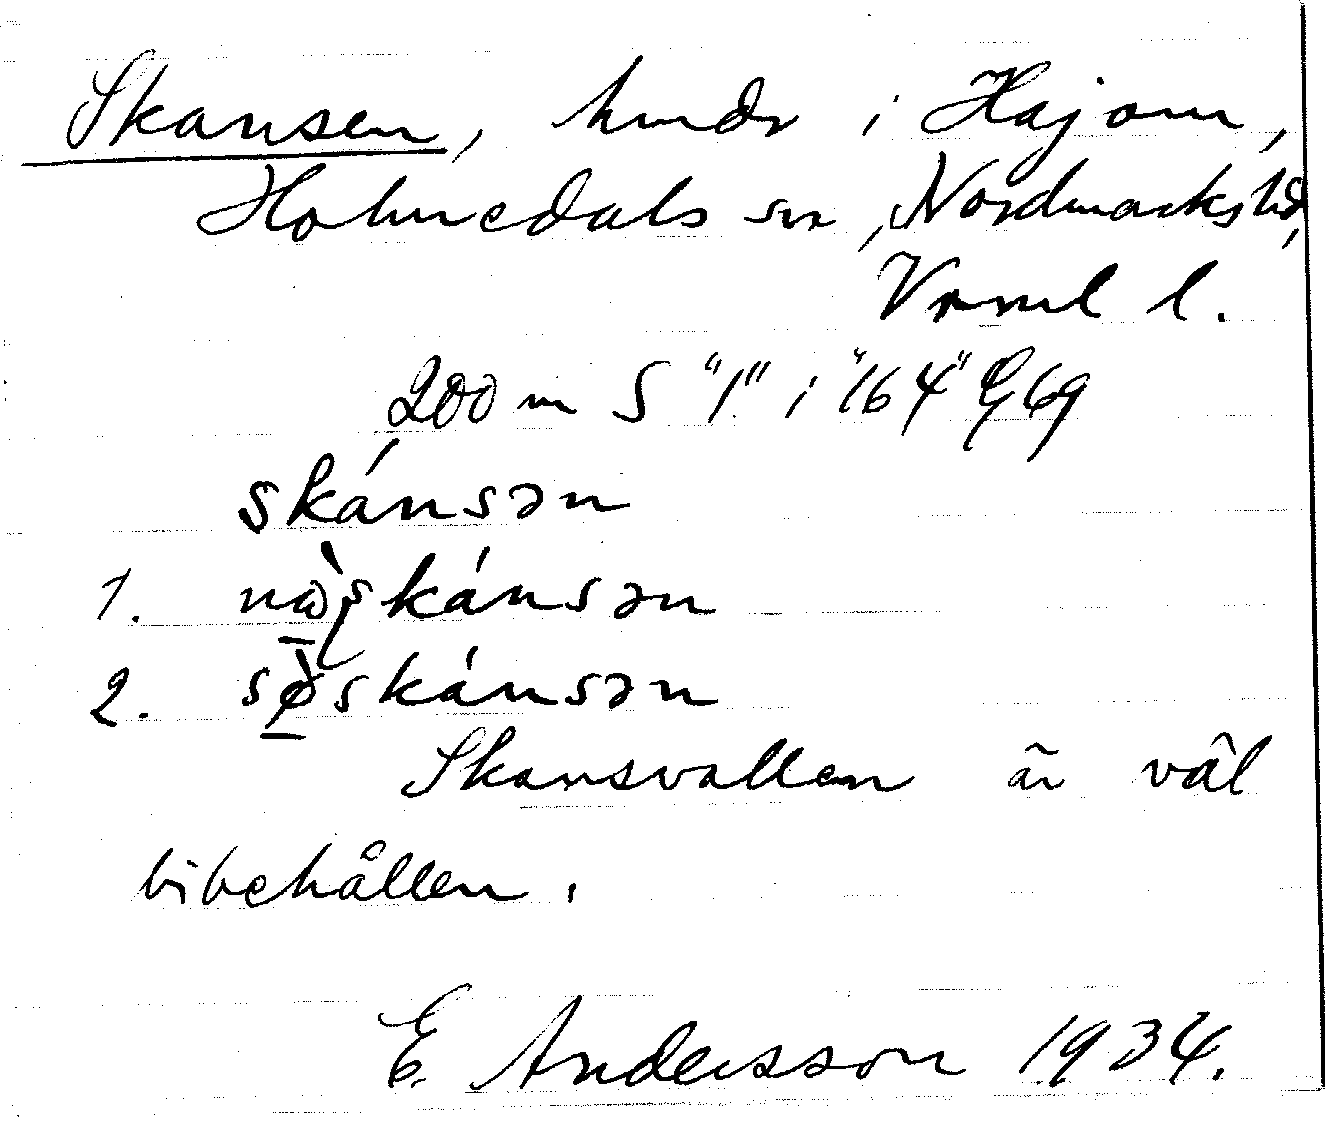 Skansen, hmdr i Hajom,
Holmedals sn, Nordmarks hd,
Vrml l.
200 m S "1" i "164" G 69
skánsən
1. nɷ̀ʂkánsən
2. sø̀skánsən
Skansvallen är väl
bibehållen.
E Andersson 1934.